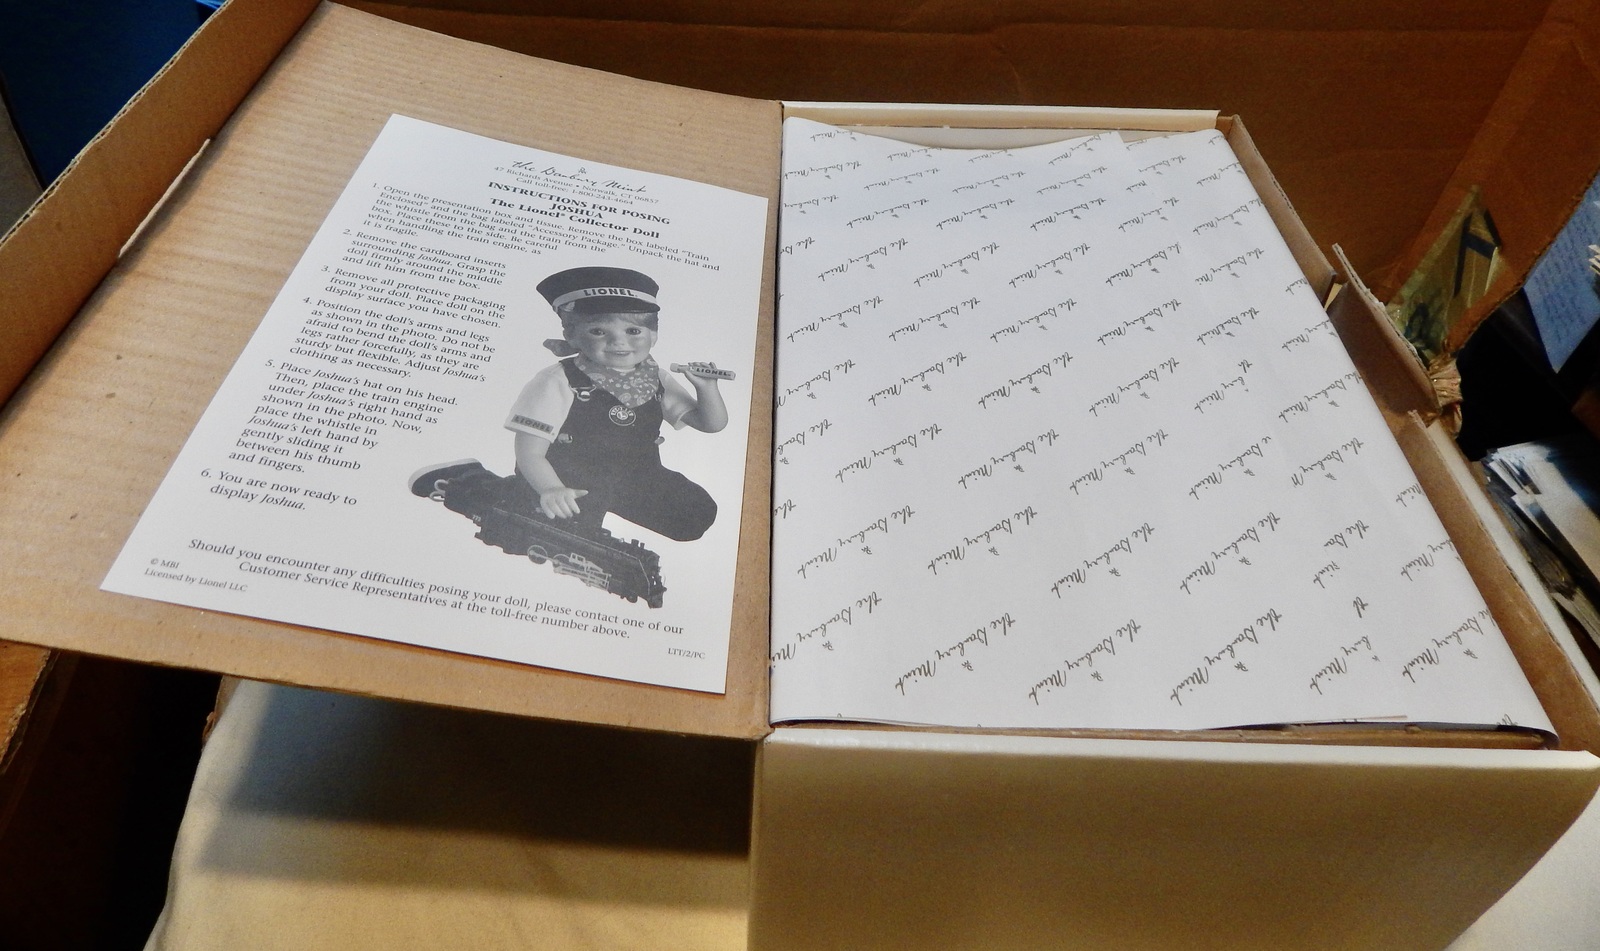 the Danbury Mint
47 Richards Avenue • Norwalk, CT 06857
Call toll-free: 1-800-243-4664
INSTRUCTIONS FOR POSING
JOSHUA
The Lionel® Collector Doll
1. Open the presentation box and tissue. Remove the box labeled “Train
Enclosed” and the bag labeled “Accessory Package.” Unpack the hat and
the whistle from the bag and the train from the
box. Place these to the side. Be careful
when handling the train engine, as
it is fragile.
2. Remove the cardboard inserts
surrounding Joshua. Grasp the
doll firmly around the middle
and lift him from the box.
3. Remove all protective packaging
from your doll. Place doll on the
display surface you have chosen.
4. Position the doll’s arms and legs
as shown in the photo. Do not be
afraid to bend the doll’s arms and
legs rather forcefully, as they are
sturdy but flexible. Adjust Joshua’s
clothing as necessary.
5. Place Joshua’s hat on his head.
Then, place the train engine
under Joshua’s right hand as
shown in the photo. Now,
place the whistle in
Joshua’s left hand by
gently sliding it
between his thumb
and fingers.
6. You are now ready to
display Joshua.
LIONEL
LIONEL
LIONEL
Should you encounter any difficulties posing your doll, please contact one of our
Customer Service Representatives at the toll-free number above.
© MBI
Licensed by Lionel LLC
LTT/2/PC
the Danbury Mint